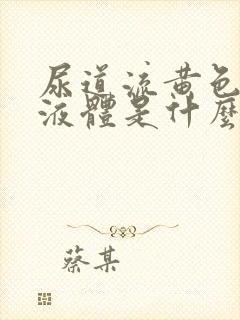 尿道流黄色
液體是什麼
蔡某